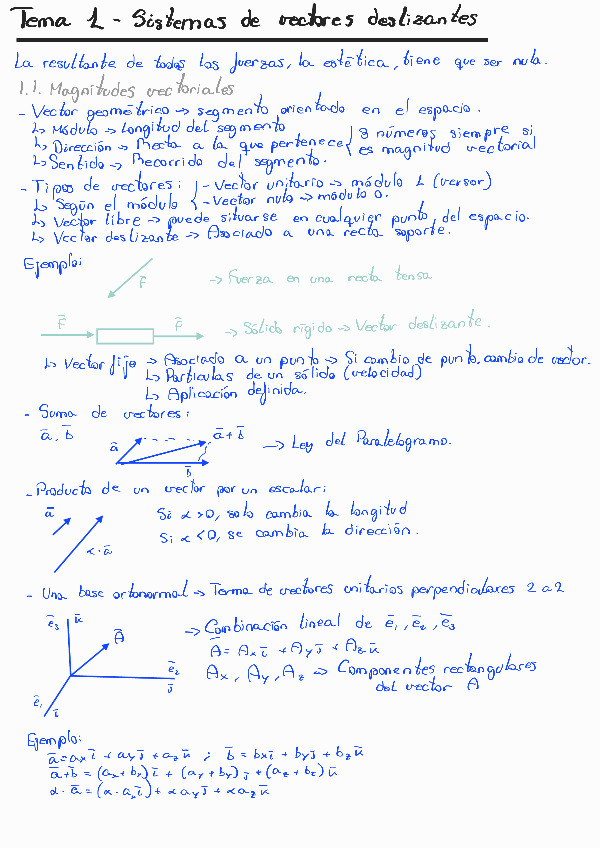 Tema 1 - Sistemas de vectores deslizantes
La resultante de todas las fuerzas, la estética, tiene que ser nula.
1.1. Magnitudes vectoriales
- Vector geométrico → segmento orientado en el espacio.
↳ Módulo → Longitud del segmento
↳ Dirección → Recta a la que pertenece } 3 números siempre si
↳ Sentido → Recorrido del segmento. es magnitud vectorial
- Tipos de vectores: { - Vector unitario → módulo 1 (versor)
↳ Según el módulo - Vector nulo → módulo 0.
↳ Vector libre → puede situarse en cualquier punto, del espacio.
↳ Vector deslizante → Asociado a una recta soporte.
Ejemplo:
F̄ → Fuerza en una recta tensa
F̄ F̄ → Sólido rígido → Vector deslizante.
↳ Vector fijo → Asociado a un punto → Si cambio de punto, cambio de vector.
↳ Partículas de un sólido (velocidad)
↳ Aplicación definida.
- Suma de vectores:
ā, b̄ ā ā+b̄ b̄ → Ley del Paralelogramo.
- Producto de un vector por un escalar:
ā Si α>0, solo cambia la longitud
α·ā Si α<0, se cambia la dirección.
- Una base ortonormal → Terma de vectores unitarios perpendiculares 2 a 2
ē₃ k̄ Ā → Combinación lineal de ē₁, ē₂, ē₃
Ā = Ax ī + Ay j̄ + Az k̄
ē₂ j̄ Ax, Ay, Az → Componentes rectangulares
ē₁ ī del vector A
Ejemplo:
ā = ax ī + ay j̄ + az k̄ ; b̄ = bx ī + by j̄ + bz k̄
ā+b̄ = (ax+bx) ī + (ay+by) j̄ + (az+bz) k̄
α·ā = (α·ax ī) + α ay j̄ + α az k̄